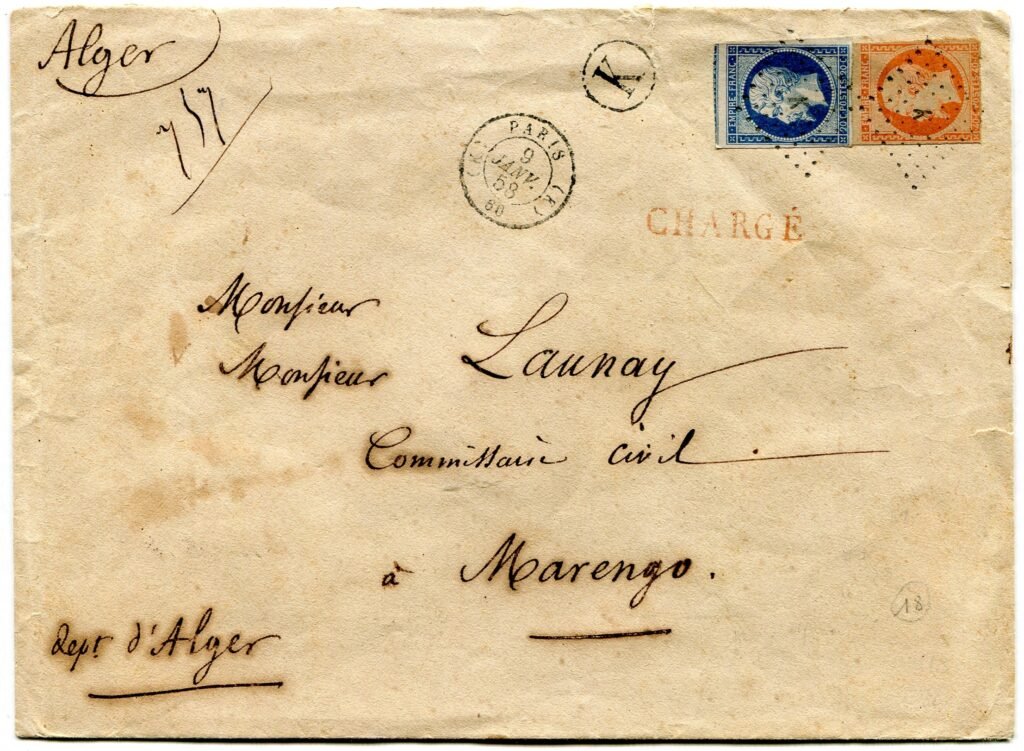 Alger
K
PARIS (K)
9
JANV.
58
60
(K)
EMPIRE FRANC.
20 C. POSTES 20 C.
CHARGÉ
Monsieur
Monsieur Launay
Commissaire civil
à Marengo.
18
Dept. d'Alger